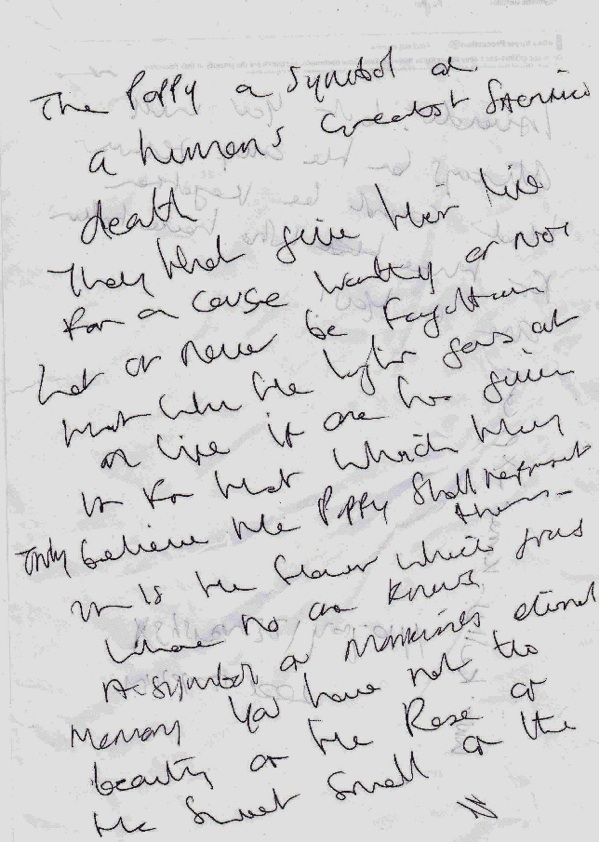 The Poppy a symbol of
a human's Greatest Sacrifice
death
They that give their life
For a cause worthy or not
Let or never be Forgotten
that when the light goes out
on life if one has given
it for that which they
Truly believe the Poppy Shall represent
them
it is the flower which grows
where no one knows
A symbol of Mankind's eternal
Memory You have not the
beauty of the Rose or
the Sweet Smell of the